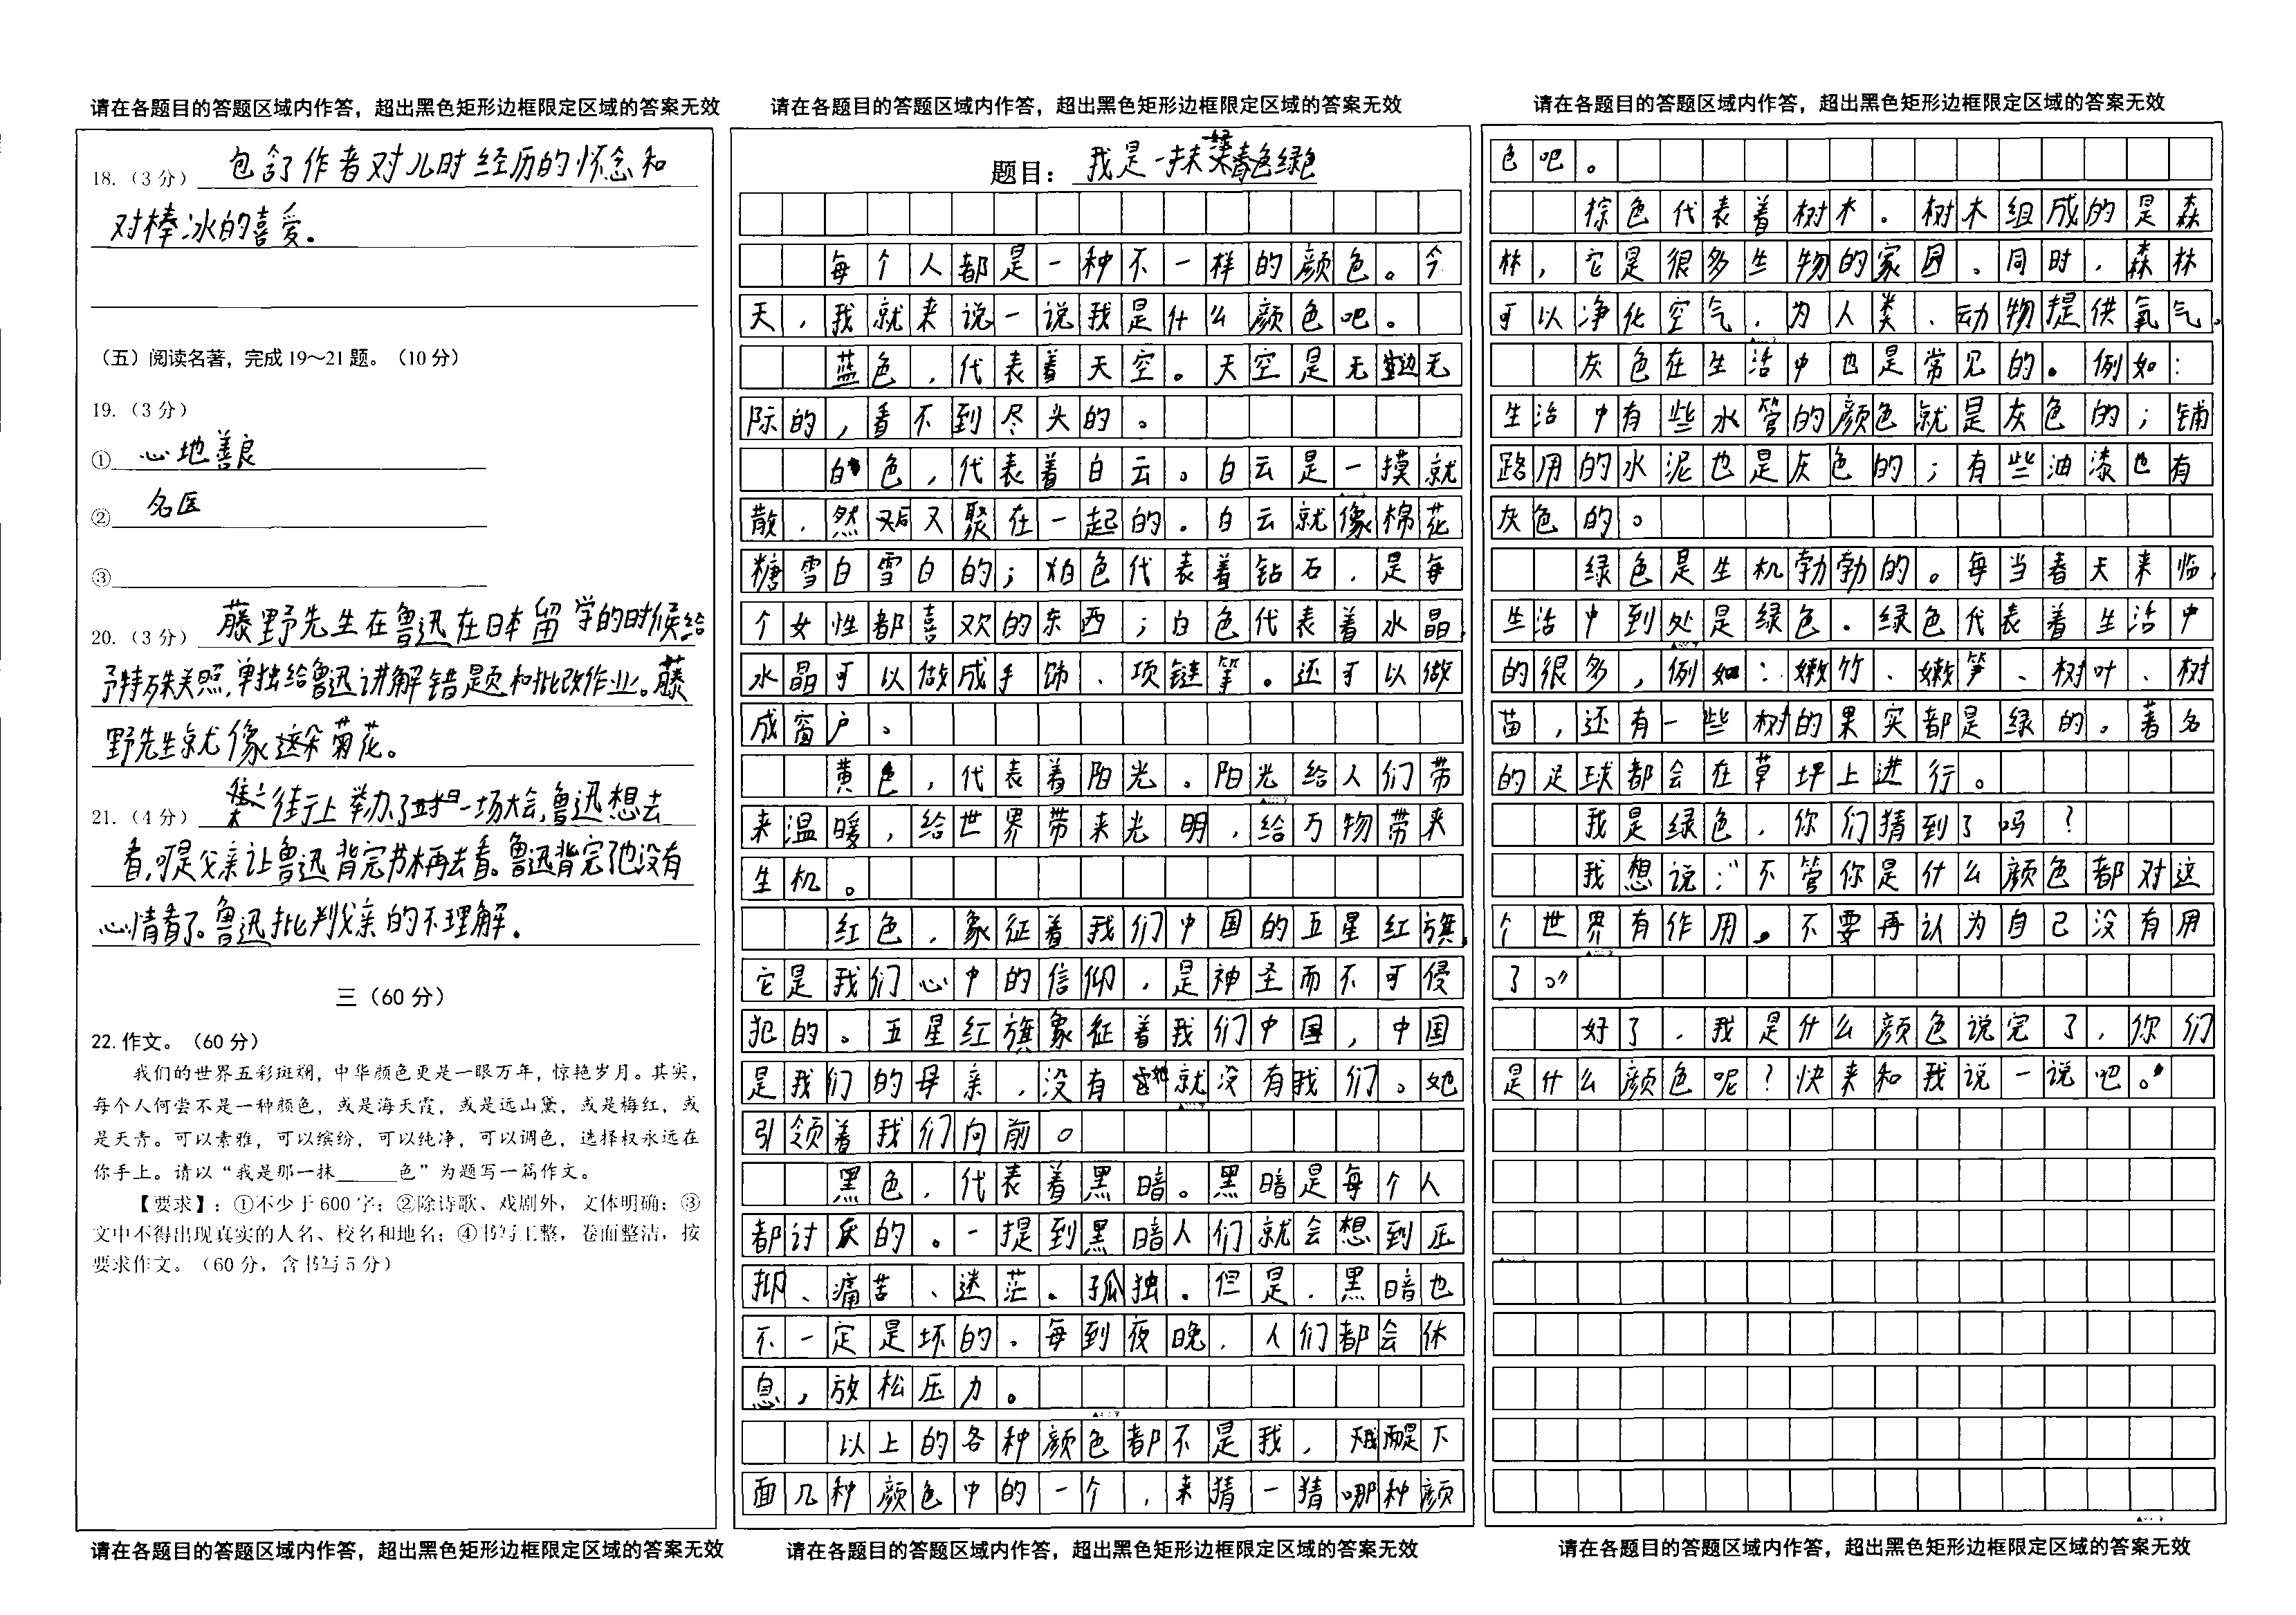 请在各题目的答题区域内作答，超出黑色矩形边框限定区域的答案无效
18.（3分） 包含了作者对儿时经历的怀念和
对棒冰的喜爱。
（五）阅读名著，完成19～21题。（10分）
19.（3分）
① 心地善良
② 名医
③
20.（3分） 藤野先生在鲁迅在日本留学的时候给
予特殊关照，单独给鲁迅讲解错题和批改作业。藤
野先生就像这朵菊花。
21.（4分） 街上举办了一场大会，鲁迅想去
看，可是父亲让鲁迅背完书本再去看。鲁迅背完了也没有
心情看了。鲁迅批判父亲的不理解。
三（60分）
22.作文。（60分）
我们的世界五彩斑斓，中华颜色更是一眼万年，惊艳岁月。其实，
每个人何尝不是一种颜色，或是海天霞，或是远山黛，或是梅红，或
是天青。可以素雅，可以缤纷，可以纯净，可以调色，选择权永远在
你手上。请以“我是那一抹______色”为题写一篇作文。
【要求】：①不少于600字；②除诗歌、戏剧外，文体明确；③
文中不得出现真实的人名、校名和地名；④书写工整，卷面整洁，按
要求作文。（60分，含书写5分）
请在各题目的答题区域内作答，超出黑色矩形边框限定区域的答案无效
请在各题目的答题区域内作答，超出黑色矩形边框限定区域的答案无效
题目： 我是一抹绿色
每个人都是一种不一样的颜色。今
天，我就来说一说我是什么颜色吧。
蓝色，代表着天空。天空是无边无
际的，看不到尽头的。
白色，代表着白云。白云是一摸就
散，然后又聚在一起的。白云就像棉花
糖雪白雪白的；白色代表着钻石，是每
个女性都喜欢的东西；白色代表着水晶，
水晶可以做成手饰、项链等。还可以做
成窗户。
黄色，代表着阳光。阳光给人们带
来温暖，给世界带来光明，给万物带来
生机。
红色，象征着我们中国的五星红旗，
它是我们心中的信仰，是神圣而不可侵
犯的。五星红旗象征着我们中国，中国
是我们的母亲，没有她就没有我们。她
引领着我们向前。
黑色，代表着黑暗。黑暗是每个人
都讨厌的。一提到黑暗人们就会想到压
抑、痛苦、迷茫。孤独。但是，黑暗也
不一定是坏的。每到夜晚，人们都会休
息，放松压力。
以上的各种颜色都不是我，我是下
面几种颜色中的一个，来猜一猜哪种颜
请在各题目的答题区域内作答，超出黑色矩形边框限定区域的答案无效
请在各题目的答题区域内作答，超出黑色矩形边框限定区域的答案无效
色吧。
棕色代表着树木。树木组成的是森
林，它是很多生物的家园。同时，森林
可以净化空气，为人类、动物提供氧气。
灰色在生活中也是常见的。例如：
生活中有些水管的颜色就是灰色的；铺
路用的水泥也是灰色的；有些油漆也有
灰色的。
绿色是生机勃勃的。每当春天来临，
生活中到处是绿色。绿色代表着生活中
的很多，例如：嫩竹、嫩笋、树叶、树
苗，还有一些树的果实都是绿的。著名
的足球都会在草坪上进行。
我是绿色，你们猜到了吗？
我想说：“不管你是什么颜色都对这
个世界有作用。不要再认为自己没有用
了。”
好了，我是什么颜色说完了，你们
是什么颜色呢？快来和我说一说吧。
请在各题目的答题区域内作答，超出黑色矩形边框限定区域的答案无效